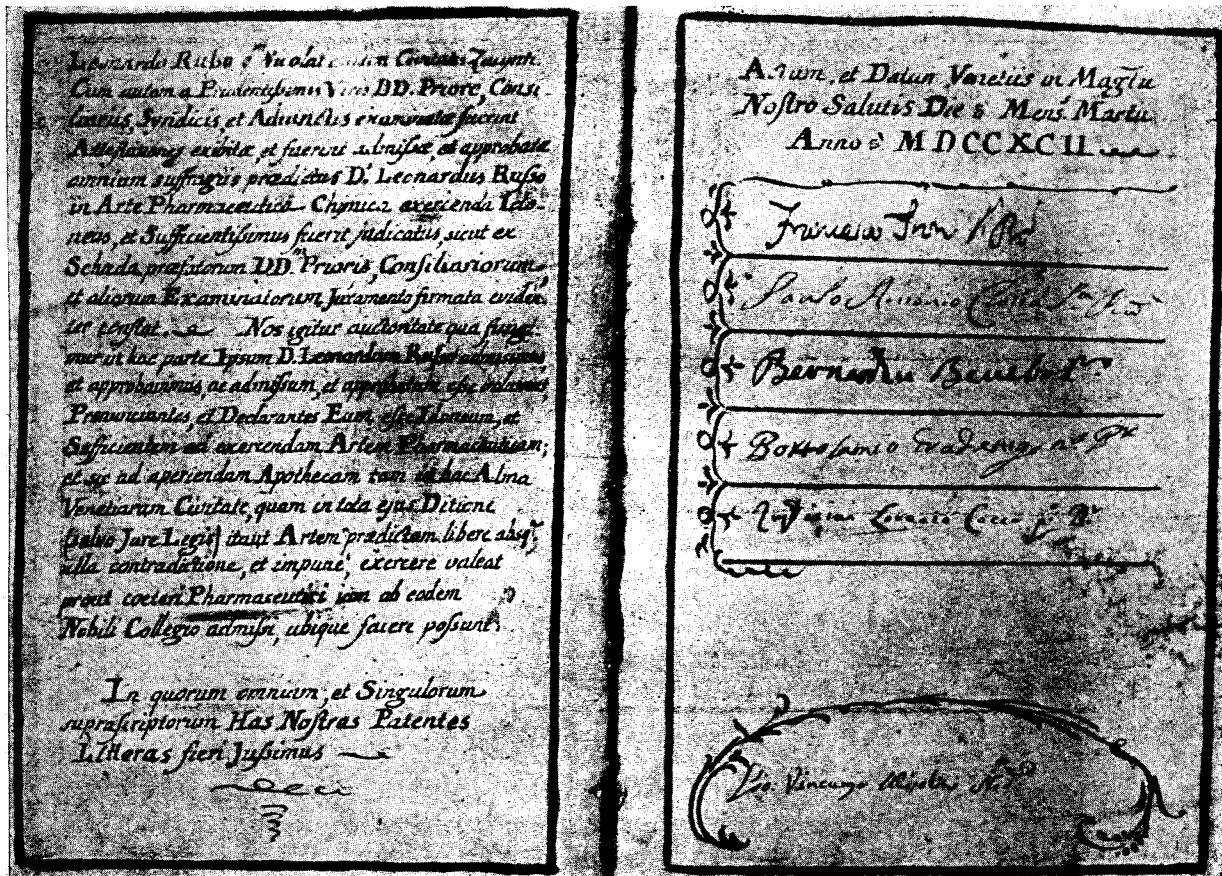 Leonardo Rubo Civitatis Zacynthi
Cum autem a Prudentissimis Viris DD. Priore, Consi-
liariis, Syndicis, et Adiunctis examinatæ fuerint
Attestationes exibitæ, et fuerint admissæ, et approbatæ
omnium suffragiis prædictus D. Leonardus Russo
in Arte Pharmaceutica Chymica exercenda Ido-
neus, et Sufficientissimus fuerit judicatus, sicut ex
Scheda præfatorum DD. Prioris, Consiliariorum
et aliorum Examinatorum Juramento firmata eviden-
ter constat. Nos igitur auctoritate qua fungi-
mur in hac parte Ipsum D. Leonardum Russo admisimus
et approbavimus, ac admissum, et approbatum esse volumus,
Pronunciantes, et Declarantes Eum esse Idoneum, et
Sufficientem ad exercendam Artem Pharmaceuticam;
et sic ad aperiendam Apothecam tam in hac Alma
Venetiarum Civitate, quam in tota ejus Ditione
(salvo Jure Legis) itaut Artem prædictam libere absq.
ulla contradictione, et impune, exercere valeat
prout cæteri Pharmaseutici jam ab eodem
Nobili Collegio admissi, ubique facere possunt.
In quorum omnium, et Singulorum
suprascriptorum Has Nostras Patentes
Litteras fieri Jussimus
Actum, et Datum Venetiis in Mag.tu
Nostro Salutis Die Mens. Martii
Anno MDCCXCII
Paulo Antonio
Bernardin
Bortolamio Gradenigo
Lorenzo
Gio. Vincenzo